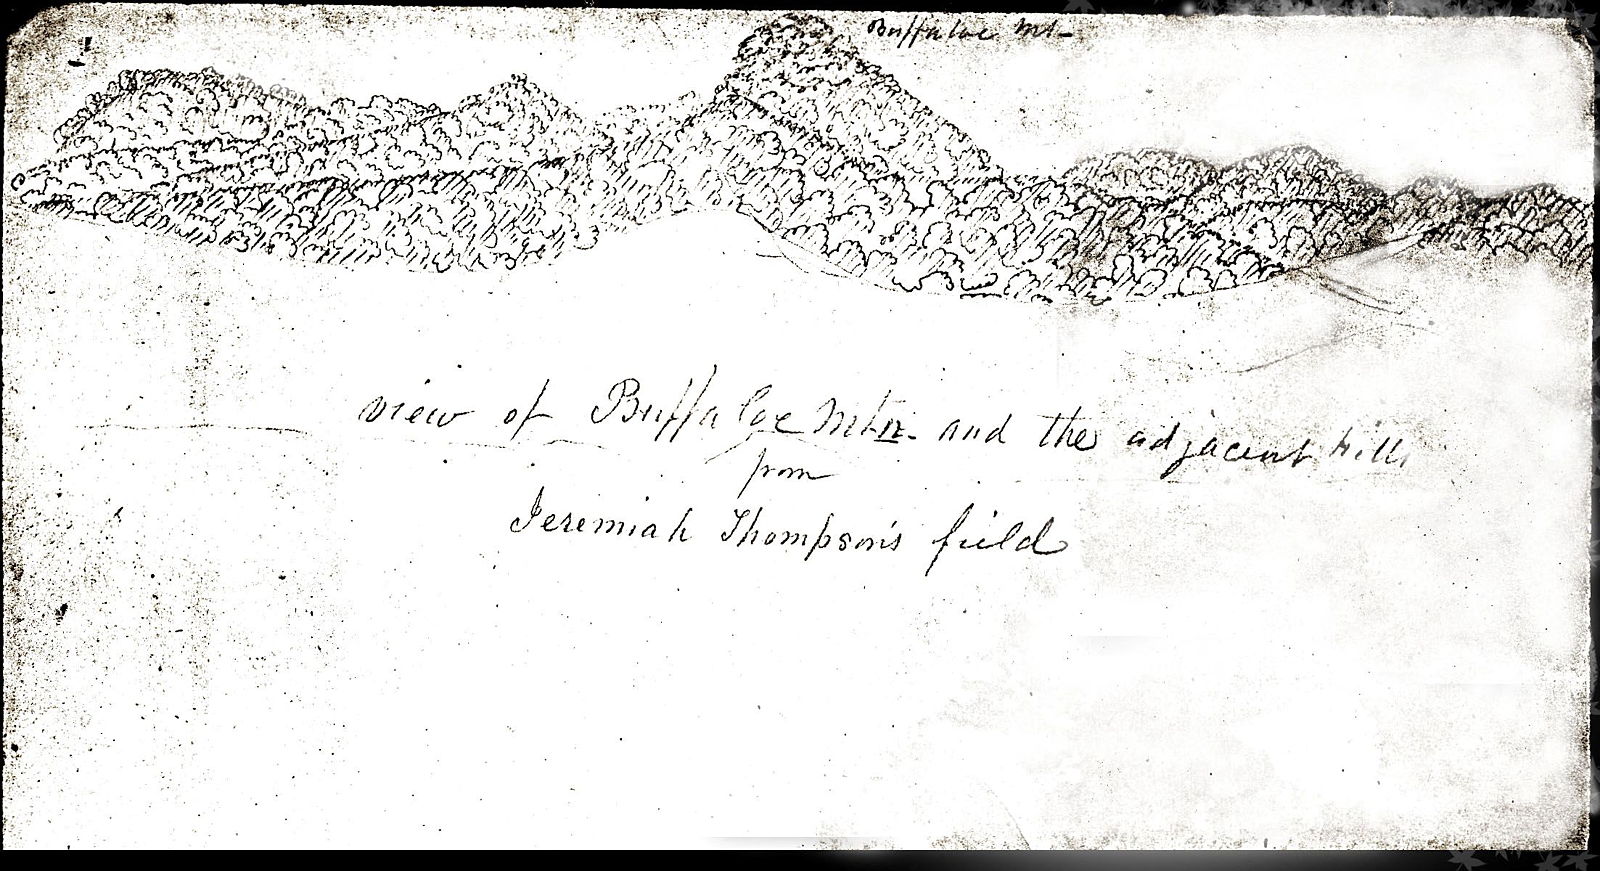 Buffaloe Mt-
view of Buffaloe Mtn. and the adjacent hills
from
Jeremiah Thompson's field